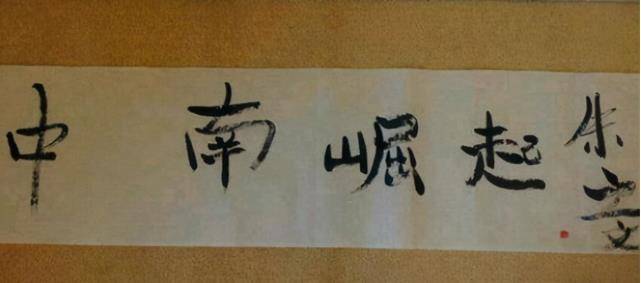 中南崛起
朱立文